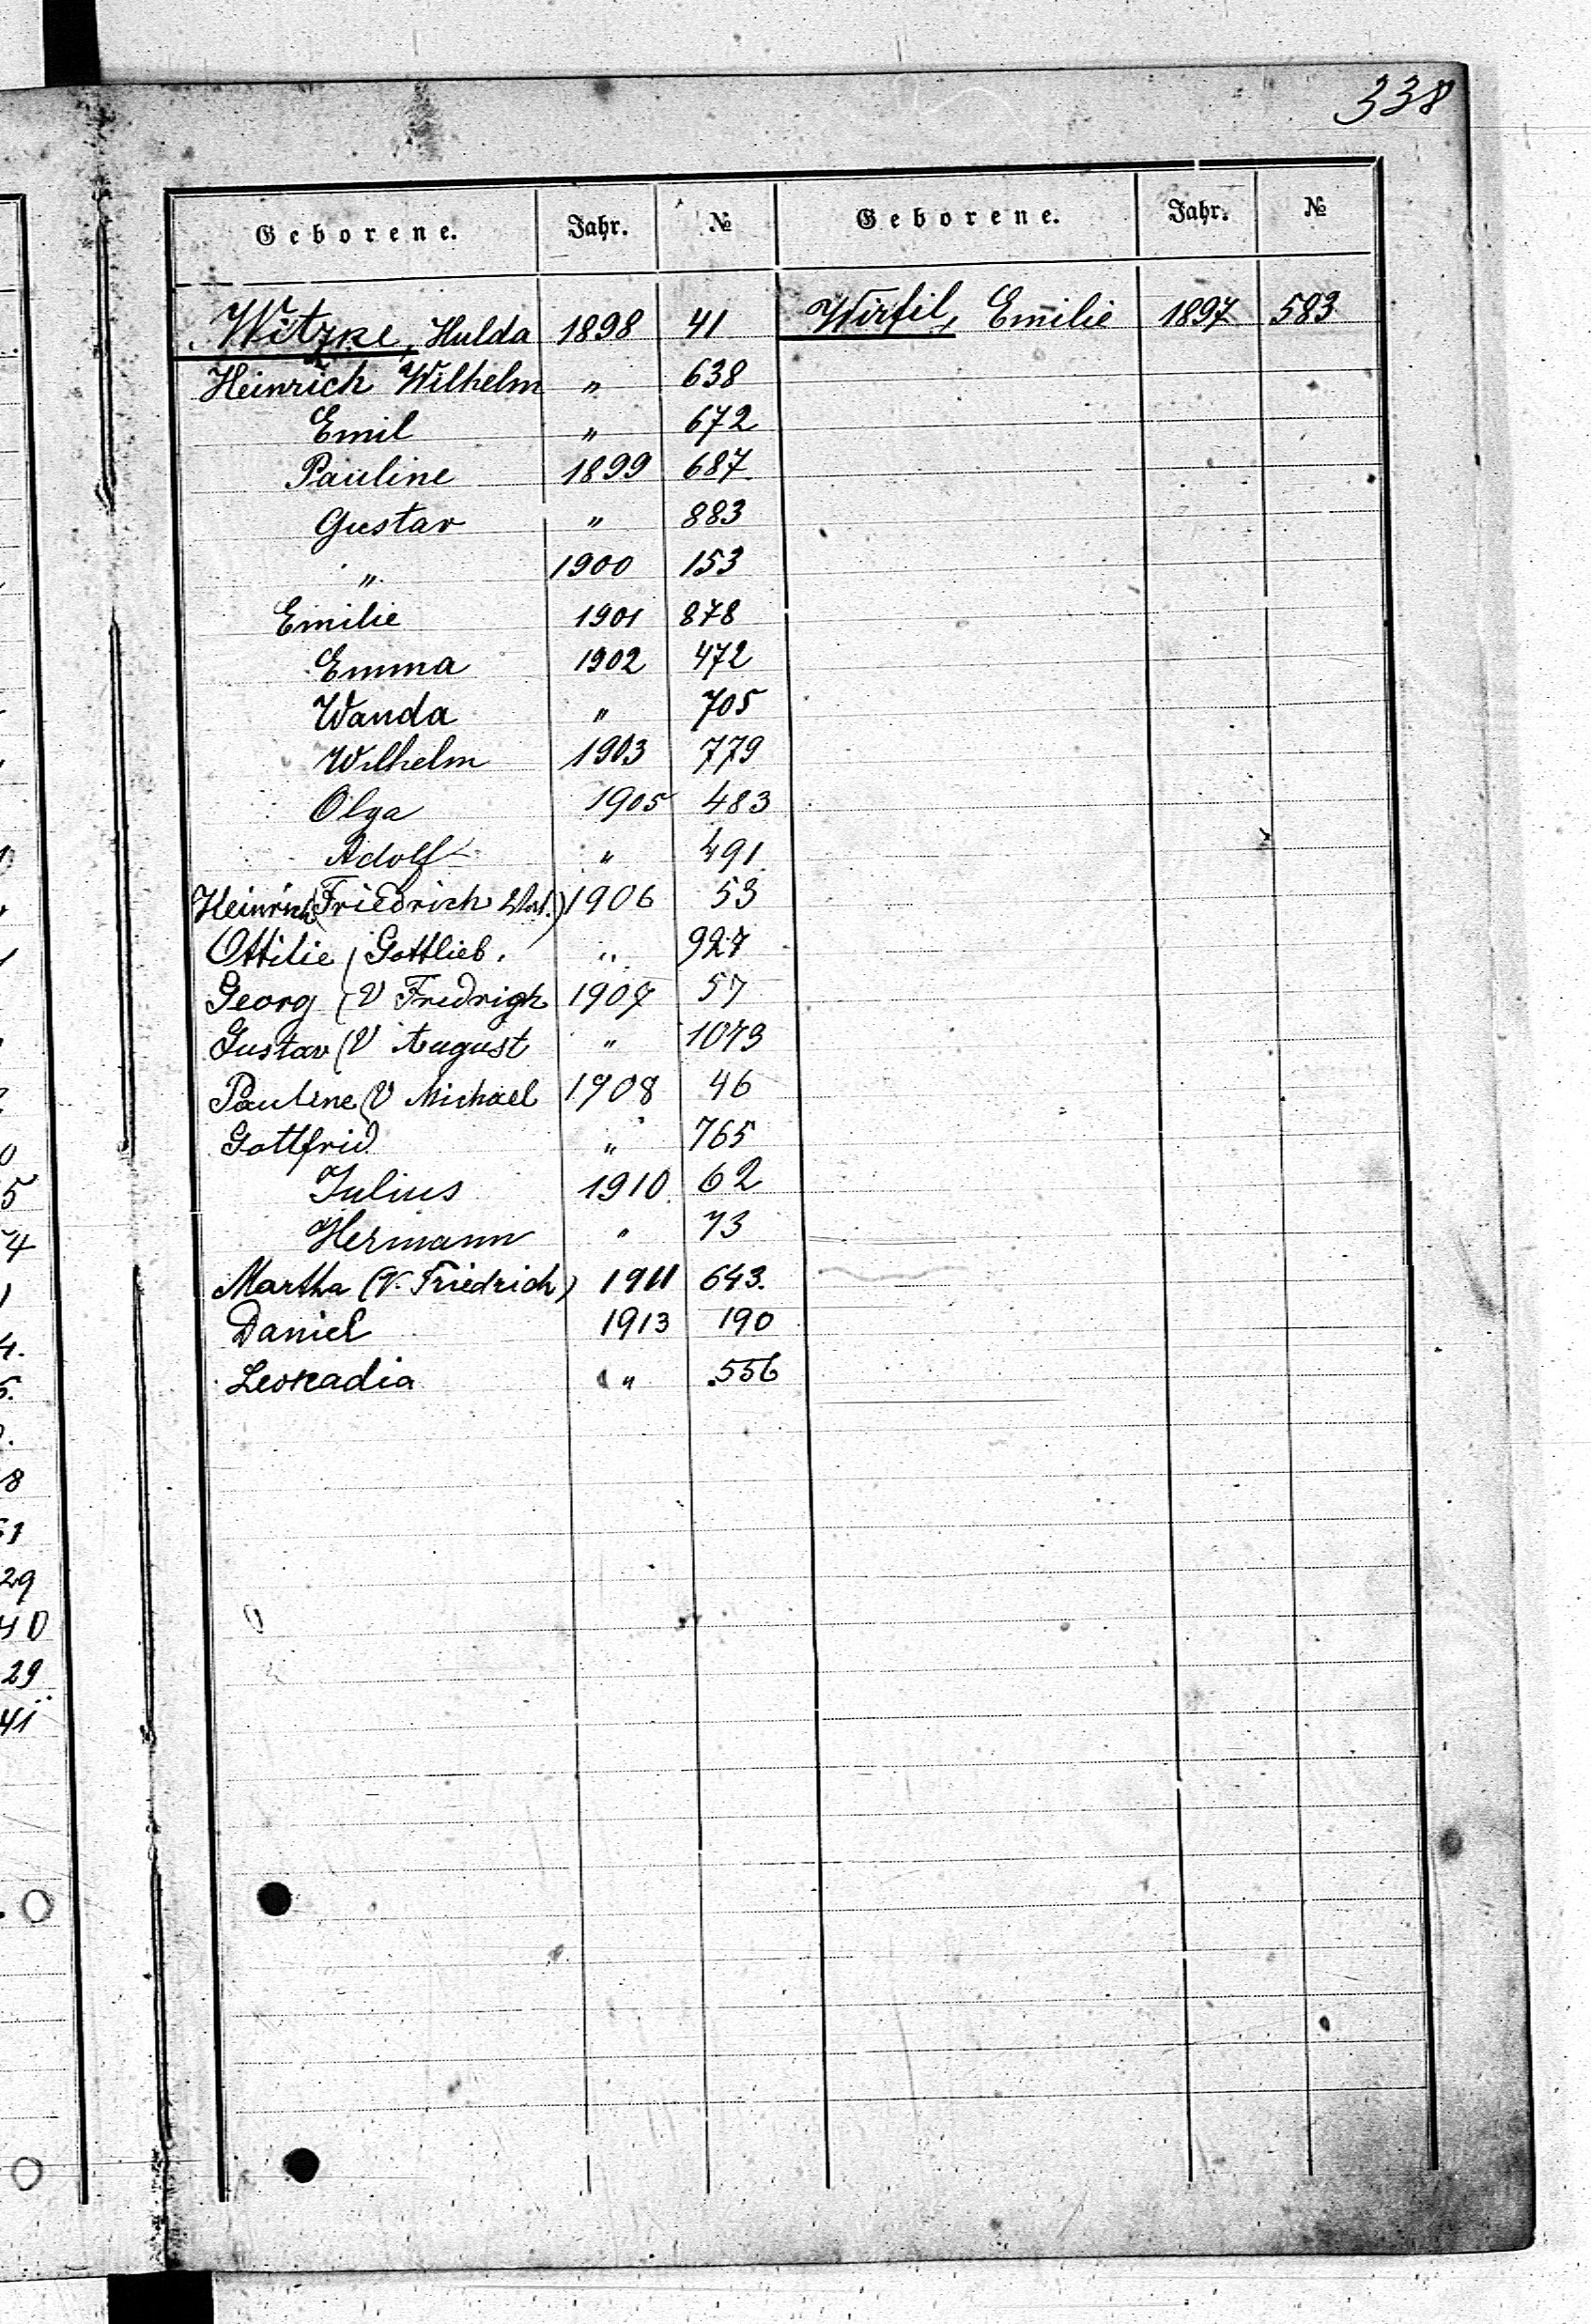 338
Geborene. Jahr. № Geborene. Jahr. №
Witzke, Hulda 1898 41 Wirfil, Emilie 1897 583
Heinrich Wilhelm " 638
Emil " 672
Pauline 1899 687
Gustav " 883
" 1900 153
Emilie 1901 878
Emma 1902 472
Wanda " 705
Wilhelm 1903 779
Olga 1905 483
Adolf " 491
Heinrich (Friedrich Vat.) 1906 53
Ottilie ( Gottlieb. " 927
Georg (V Fredrigk 1907 57
Gustav (V August " 1073
Pauline (V Michael 1908 46
Gottfrid " 765
Julius 1910 62
Hermann " 73
Martha (V. Friedrich) 1911 643.
Daniel 1913 190
Leokadia " 556
5
4
4.
5.
8
29
40
29
41